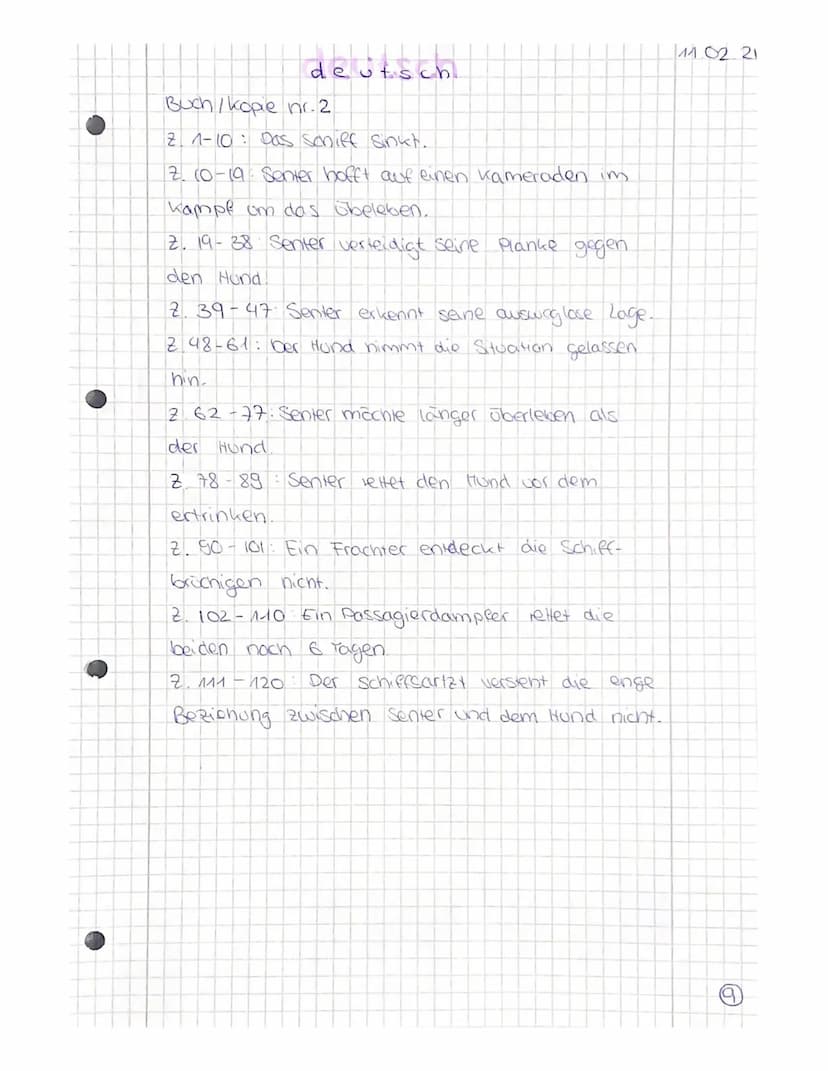 11.02.21
deutsch
Buch/Kopie nr.2
Z. 1-10: Das Schiff sinkt.
Z. 10-19: Senter hofft auf einen Kameraden im
Kampf um das Übeleben.
Z. 19-38 Senter verteidigt seine Planke gegen
den Hund.
Z. 39-47 Senter erkennt seine auswglose Lage.
Z. 48-61: Der Hund nimmt die Situation gelassen
hin.
Z. 62-77: Senter möchte länger überleben als
der Hund.
Z. 78-89: Senter rettet den Hund vor dem
ertrinken.
Z. 90-101: Ein Frachter entdeckt die Schiff-
brüchigen nicht.
Z. 102-110 Ein Passagierdampfer rettet die
beiden nach 6 Tagen.
Z. 111-120: Der Schiffsartzt versteht die enge
Beziehung zwischen Senter und dem Hund nicht.
9